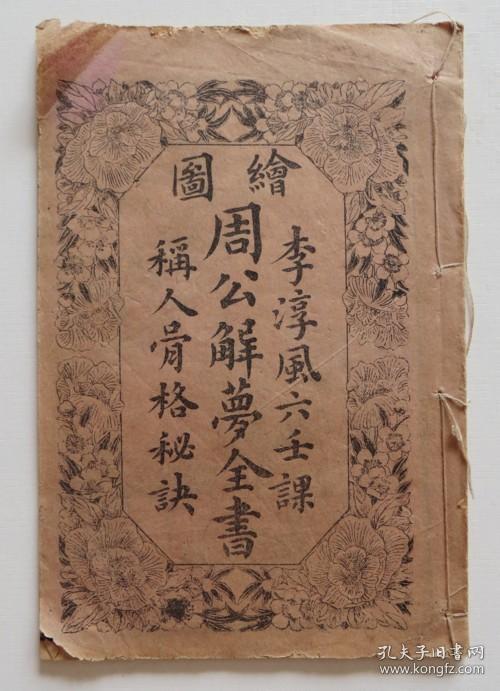 繪圖
李淳風六壬課
周公解夢全書
稱人骨格秘訣
孔夫子旧书网
www.kongfz.com